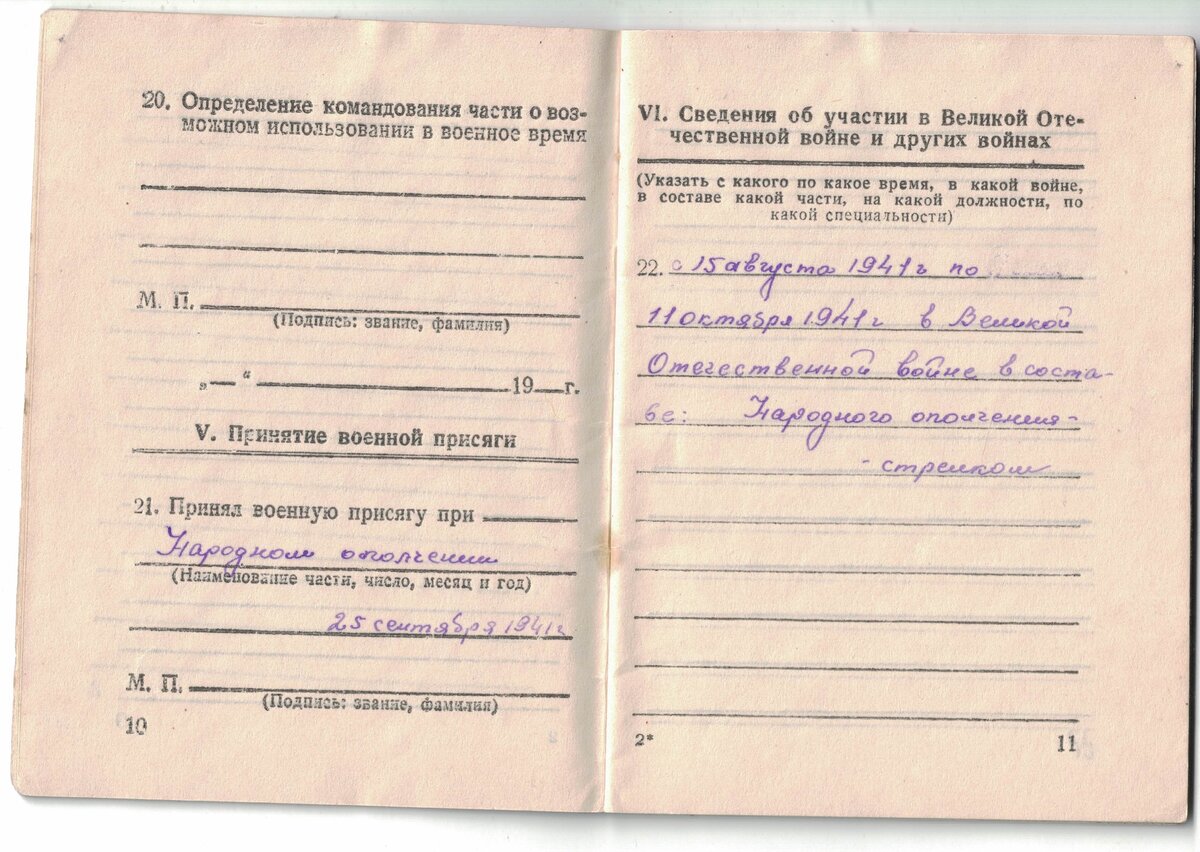 20. Определение командования части о воз-
можном использовании в военное время
М. П.
(Подпись: звание, фамилия)
„ — “ 19 — г.
V. Принятие военной присяги
21. Принял военную присягу при
Народном ополчении
(Наименование части, число, месяц и год)
25 сентября 1941 г
М. П.
(Подпись: звание, фамилия)
10
VI. Сведения об участии в Великой Оте-
чественной войне и других войнах
(Указать с какого по какое время, в какой войне,
в составе какой части, на какой должности, по
какой специальности)
22. с 15 августа 1941 г по
11 октября 1941 г в Великой
Отечественной войне в соста-
ве: Народного ополчения-
- стрелком
2*
11